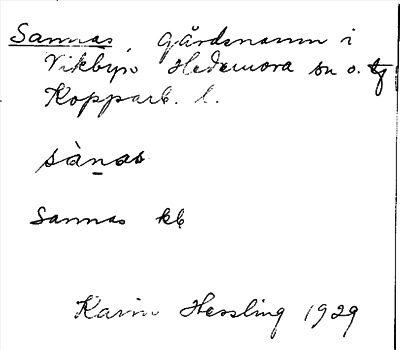 Sannas, Gårdsnamn i
Vikbyn Hedemora sn o. tg
Kopparb. l.
sànas
Sannas kb
Karin Hessling 1929